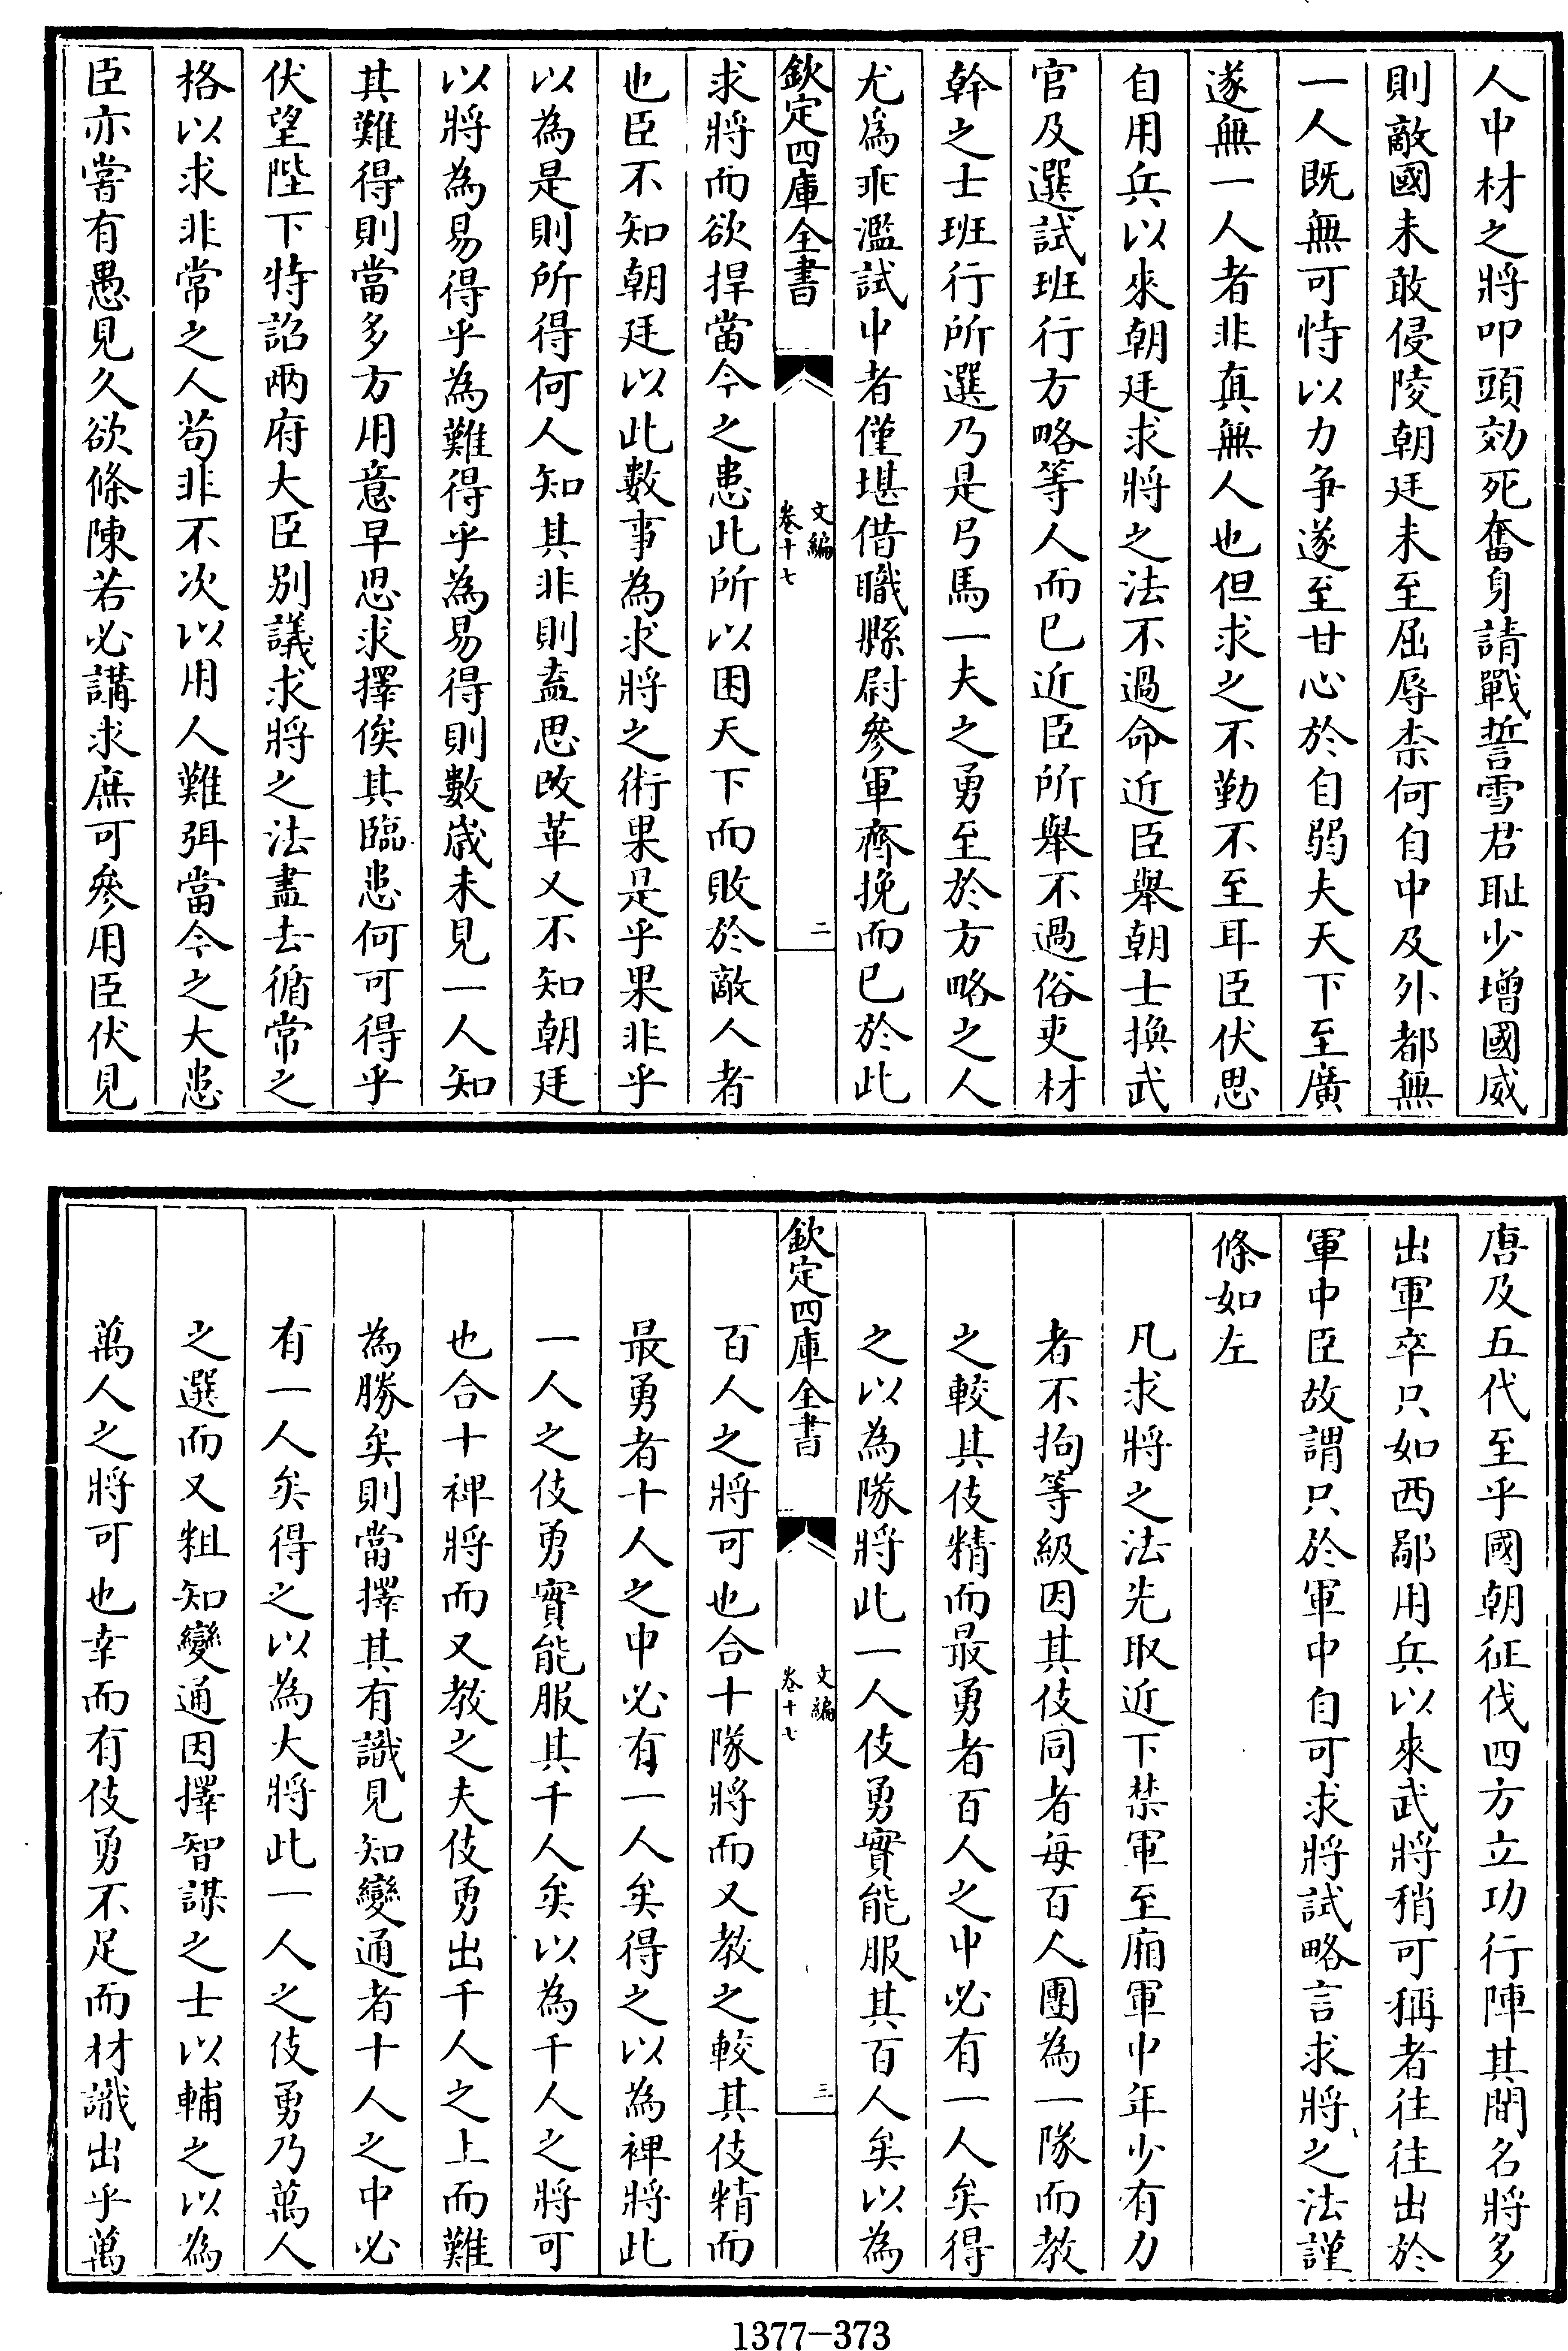 人中材之將叩頭効死奮身請戰誓雪君耻少增國威
則敵國未敢侵陵朝廷未至屈辱柰何自中及外都無
一人既無可恃以力争遂至甘心於自弱夫天下至廣
遂無一人者非真無人也但求之不勤不至耳臣伏思
自用兵以來朝廷求將之法不過命近臣舉朝士換武
官及選試班行方略等人而已近臣所舉不過俗吏材
幹之士班行所選乃是弓馬一夫之勇至於方略之人
尤爲乖濫試中者僅堪借職縣尉參軍齊挽而已於此
欽定四庫全書
文編
卷十七
二
求將而欲捍當今之患此所以困天下而敗於敵人者
也臣不知朝廷以此數事為求將之術果是乎果非乎
以為是則所得何人知其非則盍思改革又不知朝廷
以將為易得乎為難得乎為易得則數歲未見一人知
其難得則當多方用意早思求擇俟其臨患何可得乎
伏望陛下特詔兩府大臣别議求將之法盡去循常之
格以求非常之人苟非不次以用人難弭當今之大患
臣亦嘗有愚見久欲條陳若必講求庶可參用臣伏見
唐及五代至乎國朝征伐四方立功行陣其間名將多
出軍卒只如西鄙用兵以來武將稍可稱者往往出於
軍中臣故謂只於軍中自可求將試略言求將之法謹
條如左
凡求將之法先取近下禁軍至廂軍中年少有力
者不拘等級因其伎同者每百人團為一隊而教
之較其伎精而最勇者百人之中必有一人矣得
之以為隊將此一人伎勇實能服其百人矣以為
欽定四庫全書
文編
卷十七
三
百人之將可也合十隊將而又教之較其伎精而
最勇者十人之中必有一人矣得之以為裨將此
一人之伎勇實能服其千人矣以為千人之將可
也合十裨將而又教之夫伎勇出千人之上而難
為勝矣則當擇其有識見知變通者十人之中必
有一人矣得之以為大將此一人之伎勇乃萬人
之選而又粗知變通因擇智謀之士以輔之以為
萬人之將可也幸而有伎勇不足而材識出乎萬
1377-373